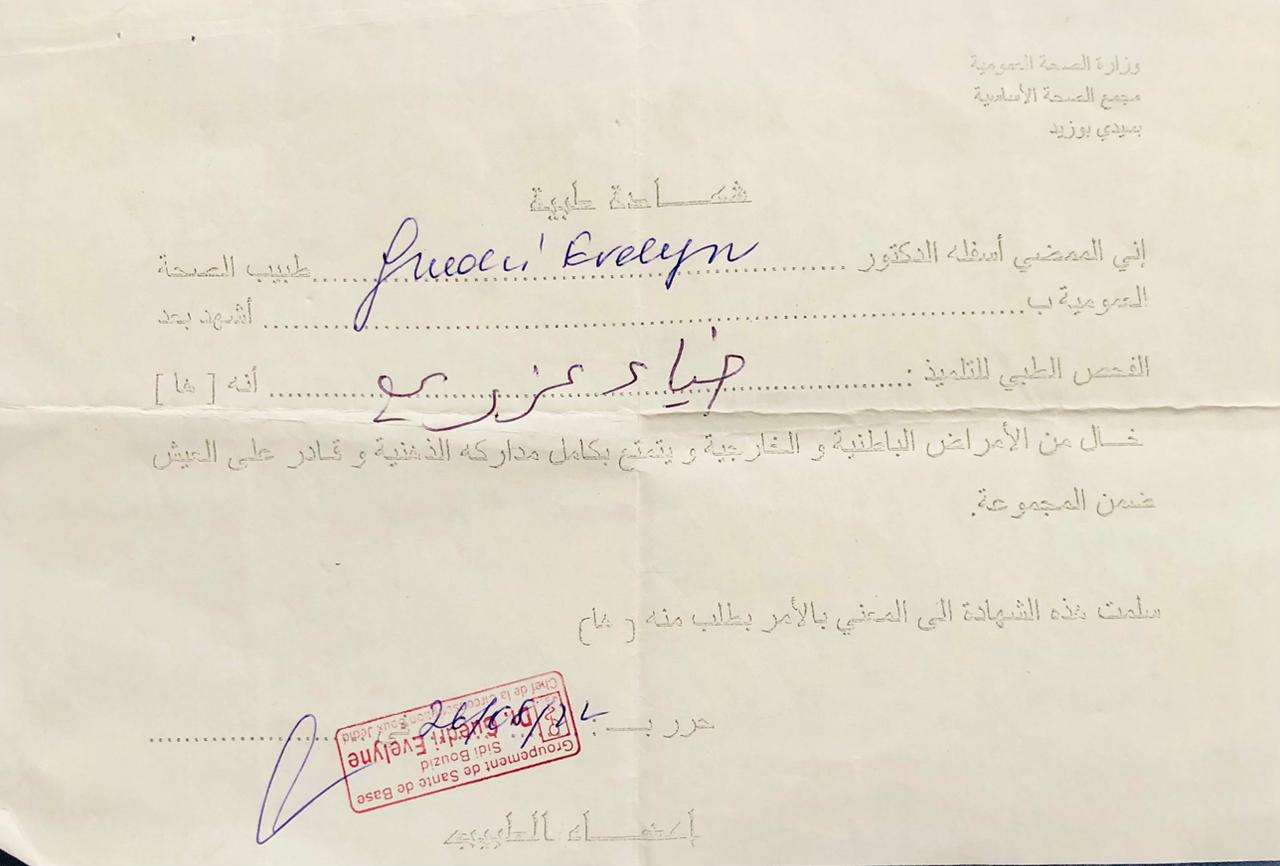 وزارة الصحة العمومية
مجمع الصحة الأساسية
بسيدي بوزيد
شهـــادة طبية
إني الممضي أسفله الدكتور Guedri Evelyn طبيب الصحة
العمومية ب أشهد بعد
الفحص الطبي للتلميذ : ضياء عزري أنه [ ها ]
خـال من الأمراض الباطنية و الخارجية و يتمتع بكامل مداركه الذهنية و قـادر على العيش
ضمن المجموعة.
سلمت هذه الشهادة الى المعني بالأمر بطلب منه ( ها )
حرر بـ
Groupement de Sante de Base
Sidi Bouzid
Dr. Guedri Evelyne
Chef de la Circonscription
إمضـــاء الطبيب